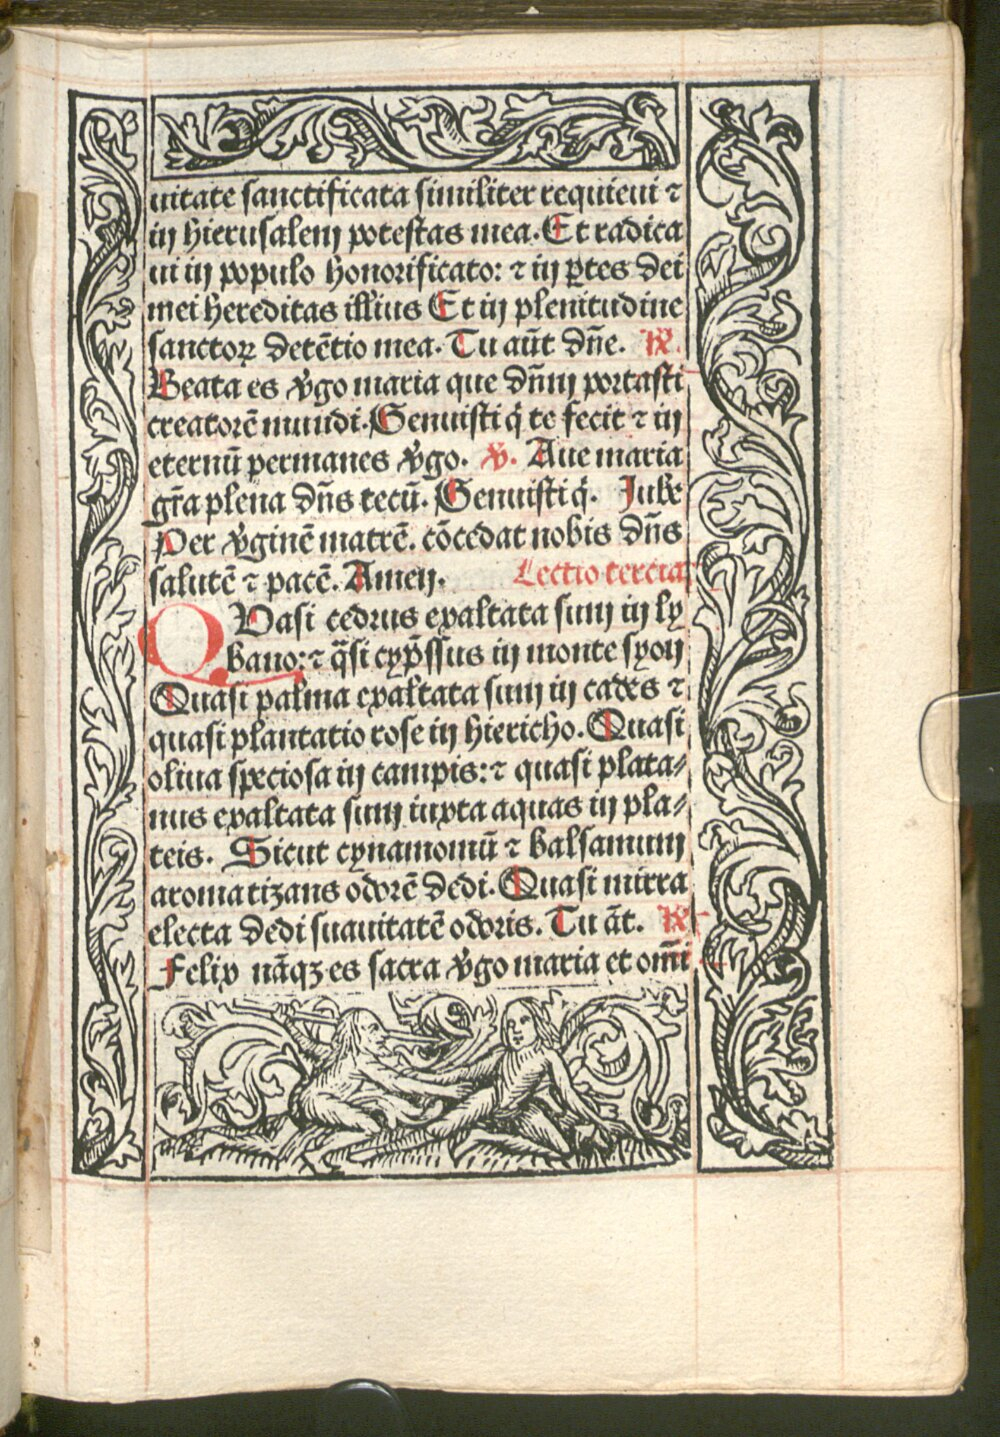 uitate sanctificata similiter requieui ⁊
in hierusalem potestas mea. Et radica
ui in populo honorificato: ⁊ in ꝑtes dei
mei hereditas illius Et in plenitudine
sanctoꝝ detētio mea. Tu aūt dn̄e. ℟.
Beata es v̓go maria que dn̄m portasti
creatorē mundi. Genuisti q̇ te fecit ⁊ in
eternū permanes v̓go. ℣. Aue maria
gr̄a plena dn̄s tecū. Genuisti q̇. Jube
Per v̓ginē matrē. cōcedat nobis dn̄s
salutē ⁊ pacē. Amen. Lectio tercia.
QVasi cedrus exaltata sum in ly
bano: ⁊ q̄si cyp̄ssus in monte syon
Quasi palma exaltata sum in cades ⁊
quasi plantatio rose in hiericho. Quasi
oliua speciosa in campis: ⁊ quasi plata⸗
nus exaltata sum iuxta aquas in pla⸗
teis. Sicut cynamomū ⁊ balsamum
aromatizans odorē dedi. Quasi mirra
electa dedi suauitatē odoris. Tu āt. ℟
Felix nāqꝫ es sacra v̓go maria et om̄i